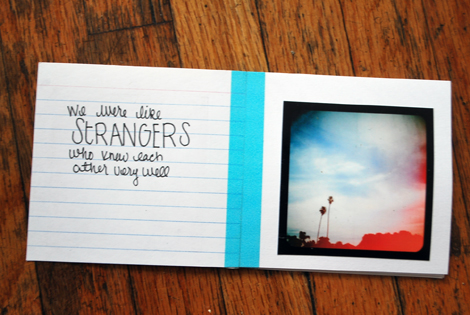 We were like
STRANGERS
who knew each
other very well